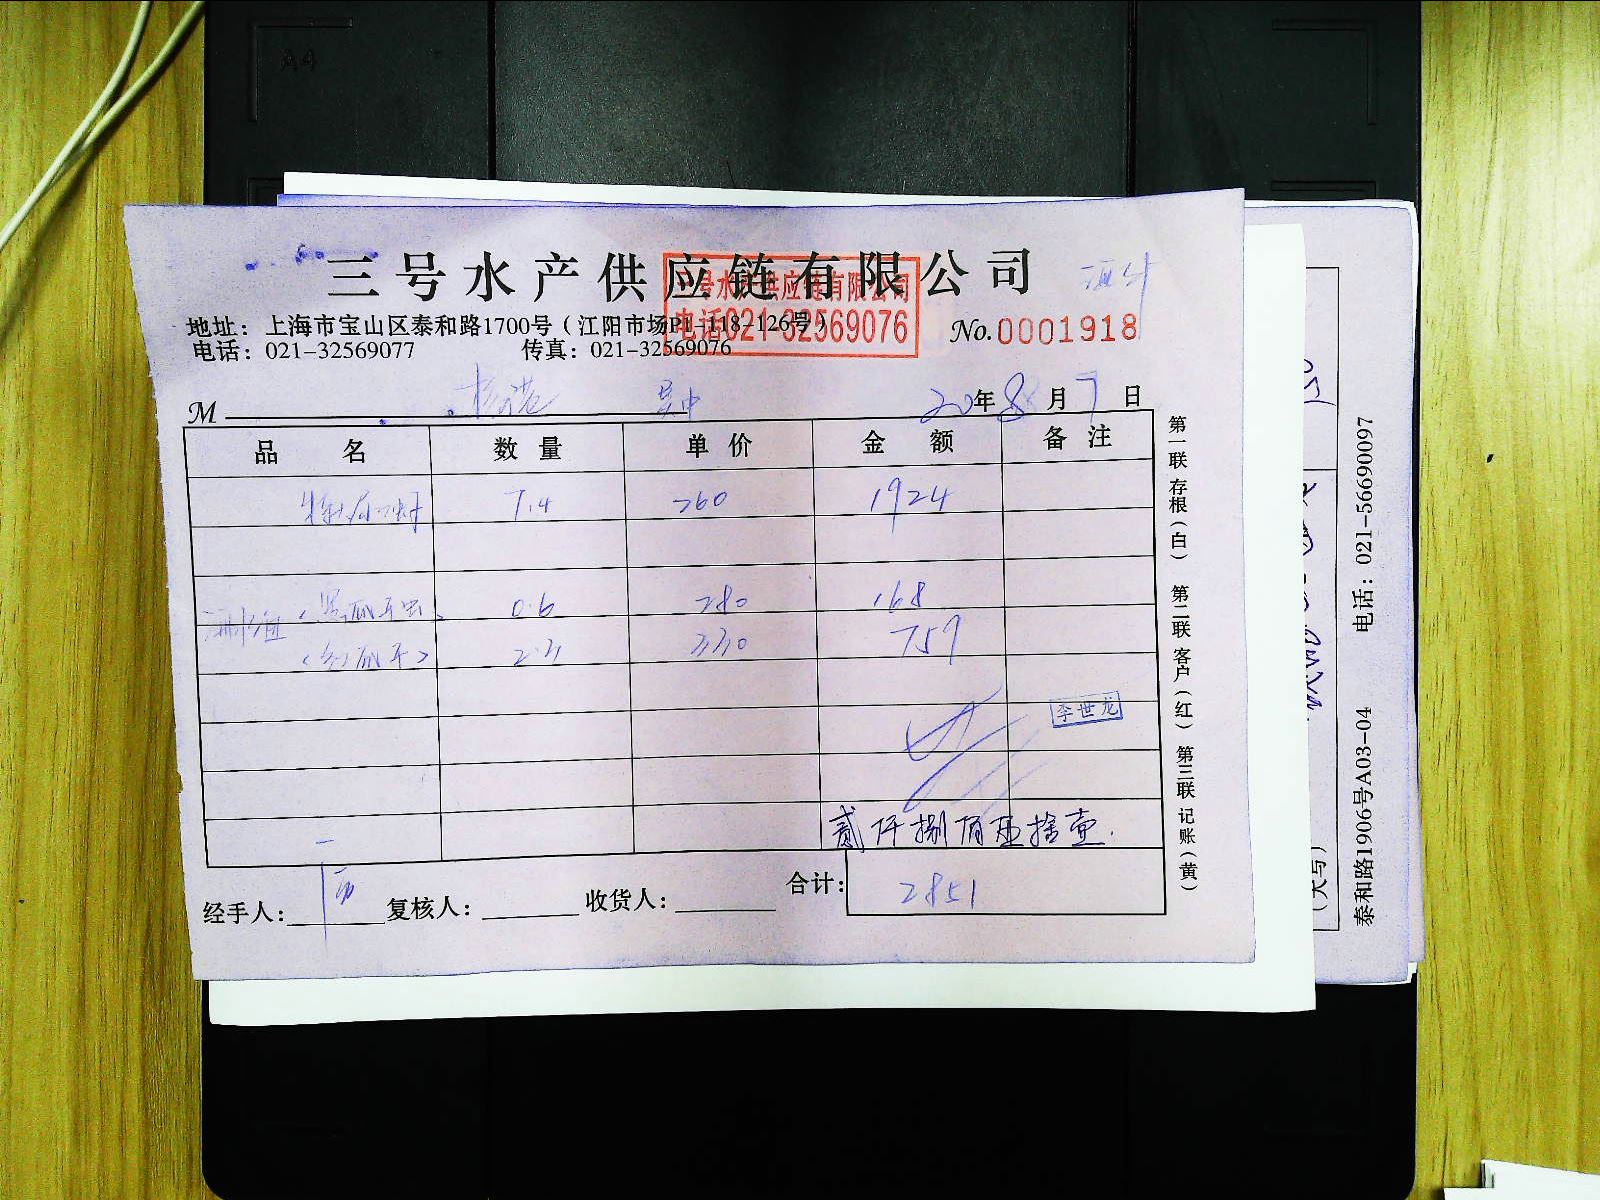 三号水产供应链有限公司
三号水产供应链有限公司
电话021-32569076
地址：上海市宝山区泰和路1700号（江阳市场P1-118-126号）
电话：021-32569077 传真：021-32569076
No.0001918
M 杨港 吴中 20年8月7日
品名 数量 单价 金额 备注
7.4 260 1924
0.6 280 168
2.3 330 759
李世龙
贰仟捌佰伍拾壹
合计：2851
经手人： 复核人： 收货人：
第一联存根（白） 第二联客户（红） 第三联记账（黄）
（大写）
泰和路1906号A03-04 电话：021-56690097